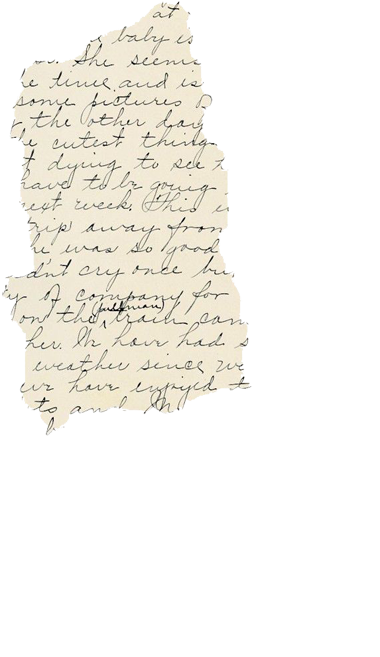 at
baby is
She seems
e time and is
some pictures
the other day
e cutest thing
t dying to see
have to be going
ext week. This
rip away from
he was so good
dn't cry once bu
y of company for
(pullman)
on the train can
her. We have had s
weather since we
we have enjoyed t
to an